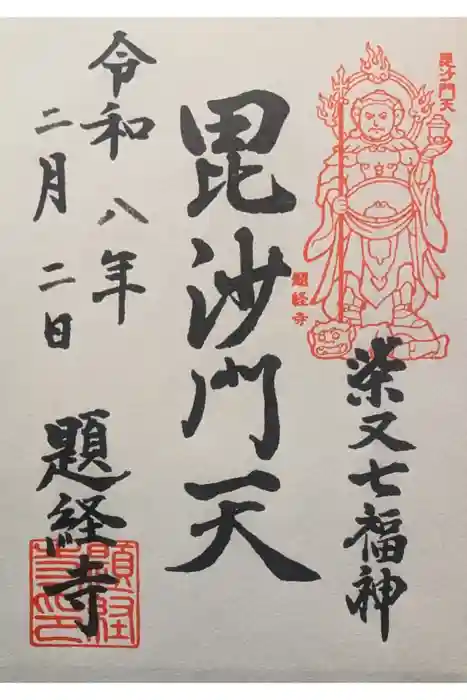 毘沙門天
題経寺
柴又七福神
毘沙門天
令和八年
二月二日
題経寺